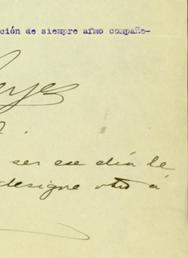 ción de siempre afmo compañe-
eyes
ser ese día le
designe otro á